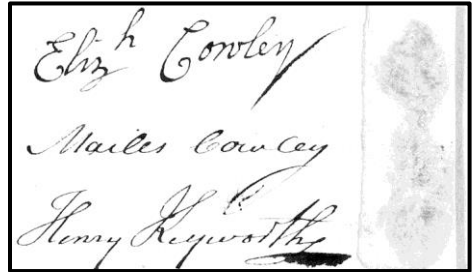 Eliz^h Cowley
Mailes Cowley
Henry Keyworth